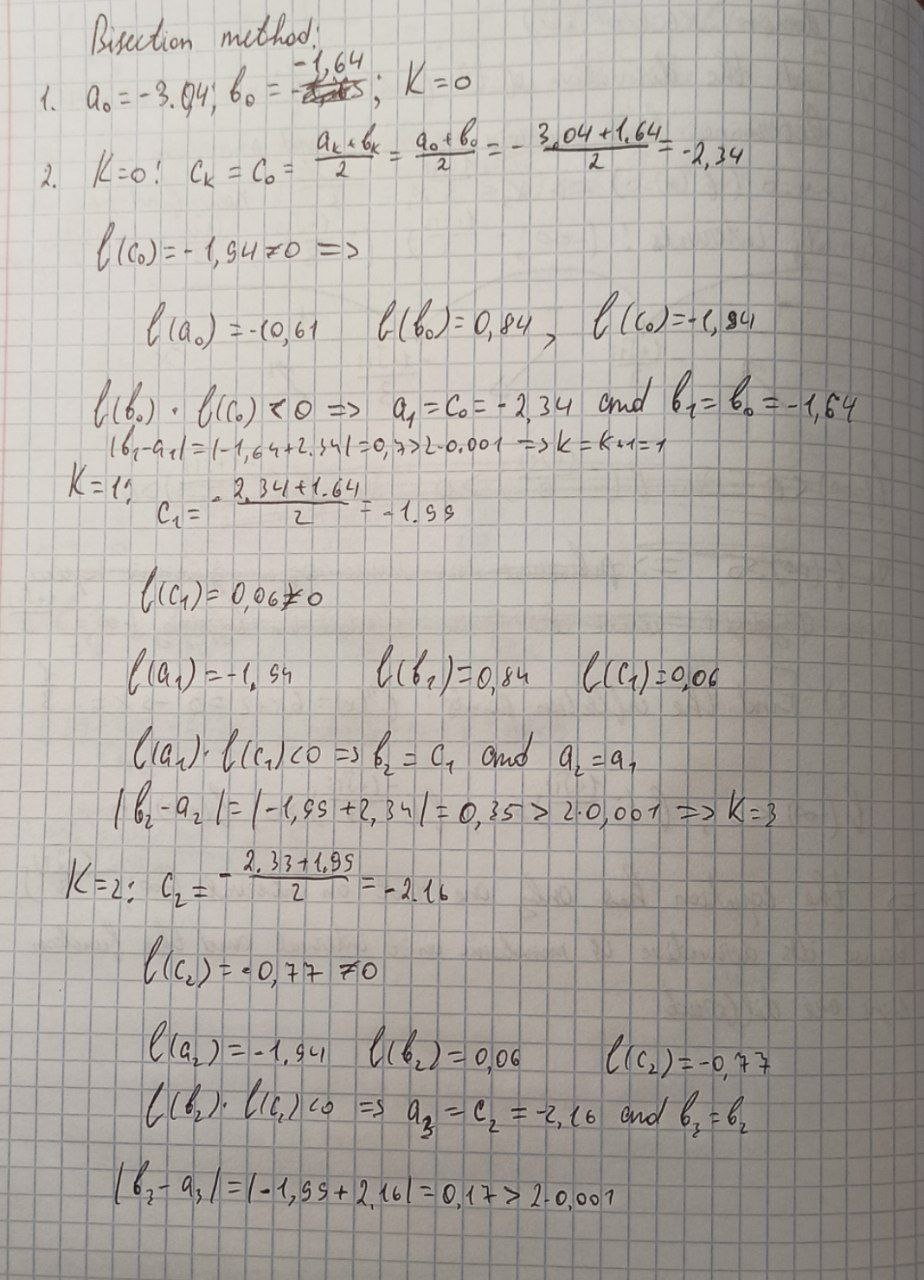 Bisection method:
1. a₀ = -3.04; b₀ = -1,64; K=0
2. K=0: cₖ = c₀ = (aₖ+bₖ)/2 = (a₀+b₀)/2 = - (3,04+1.64)/2 = -2,34
f(c₀) = -1,94≠0 =>
f(a₀) = -10,61 f(b₀) = 0,84, f(c₀) = -1,94
f(b₀) · f(c₀) < 0 => a₁ = c₀ = -2,34 and b₁ = b₀ = -1,64
|b₁-a₁| = |-1,64+2.34| = 0,7>2·0.001 => k = k+1 = 1
K=1: c₁ = - (2,34+1.64)/2 = -1.99
f(c₁) = 0,06≠0
f(a₁) = -1.94 f(b₁) = 0,84 f(c₁) = 0,06
f(a₁) · f(c₁)<0 => b₂ = c₁ and a₂ = a₁
|b₂-a₂| = |-1,99+2,34| = 0,35 > 2·0,001 => K=3
K=2: c₂ = - (2.33+1.99)/2 = -2.16
f(c₂) = -0,77 ≠0
f(a₂) = -1.94 f(b₂) = 0,06 f(c₂) = -0,77
f(b₂) · f(c₂)<0 => a₃ = c₂ = -2,16 and b₃ = b₂
|b₃-a₃| = |-1,99+2,16| = 0,17 > 2·0,001